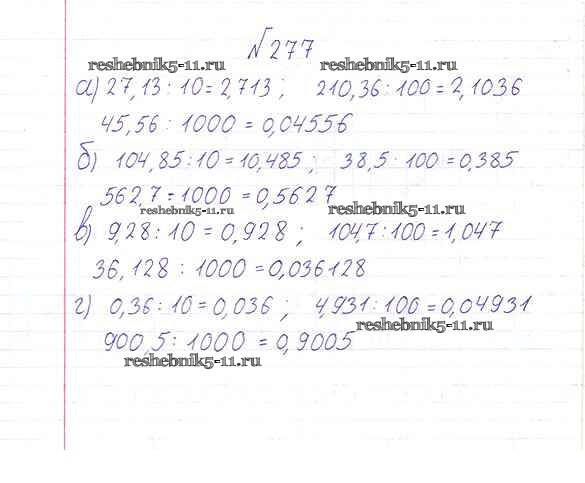 №277
reshebnik5-11.ru reshebnik5-11.ru
а) 27,13 : 10 = 2,713 ; 210,36 : 100 = 2,1036
45,56 : 1000 = 0,04556
б) 104,85 : 10 = 10,485 ; 38,5 : 100 = 0,385
562,7 : 1000 = 0,5627
reshebnik5-11.ru reshebnik5-11.ru
в) 9,28 : 10 = 0,928 ; 104,7 : 100 = 1,047
36,128 : 1000 = 0,036128
г) 0,36 : 10 = 0,036 ; 4,931 : 100 = 0,04931
reshebnik5-11.ru
900,5 : 1000 = 0,9005
reshebnik5-11.ru